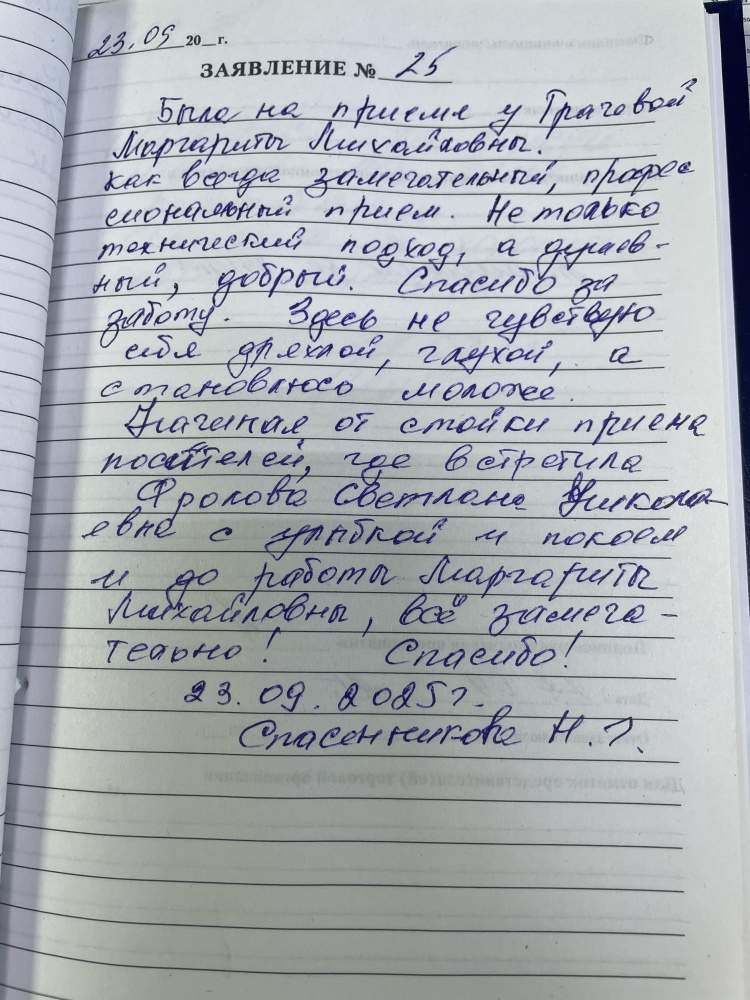 23.09 20__г.
ЗАЯВЛЕНИЕ № 25
Была на приеме у Грачевой
Маргариты Михайловны.
Как всегда замечательный, профес
сиональный прием. Не только
технический подход, а душев-
ный, добрый. Спасибо за
заботу. Здесь не чувствую
себя дряхлой, глухой, а
становлюсь моложе.
Начиная от стойки приема
посетителей, где встретила
Фролова Светлана Никола-
евна с улыбкой и покоем
и до работы Маргариты
Михайловны, всё замеча-
тельно! Спасибо!
23.09.2025г.
Спасенникова Н.Г.